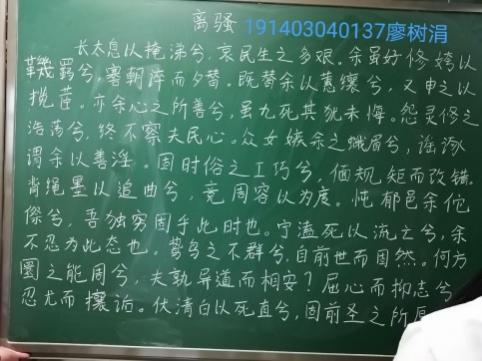 离骚
191403040137廖树涓
长太息以掩涕兮，哀民生之多艰。余虽好修姱以
鞿羁兮，謇朝谇而夕替。既替余以蕙纕兮，又申之以
揽茝。亦余心之所善兮，虽九死其犹未悔。怨灵修之
浩荡兮，终不察夫民心。众女嫉余之蛾眉兮，谣诼
谓余以善淫。固时俗之工巧兮，偭规矩而改错。
背绳墨以追曲兮，竞周容以为度。忳郁邑余侘
傺兮，吾独穷困乎此时也。宁溘死以流亡兮，余
不忍为此态也。鸷鸟之不群兮，自前世而固然。何方
圜之能周兮，夫孰异道而相安？屈心而抑志兮
忍尤而攘诟。伏清白以死直兮，固前圣之所